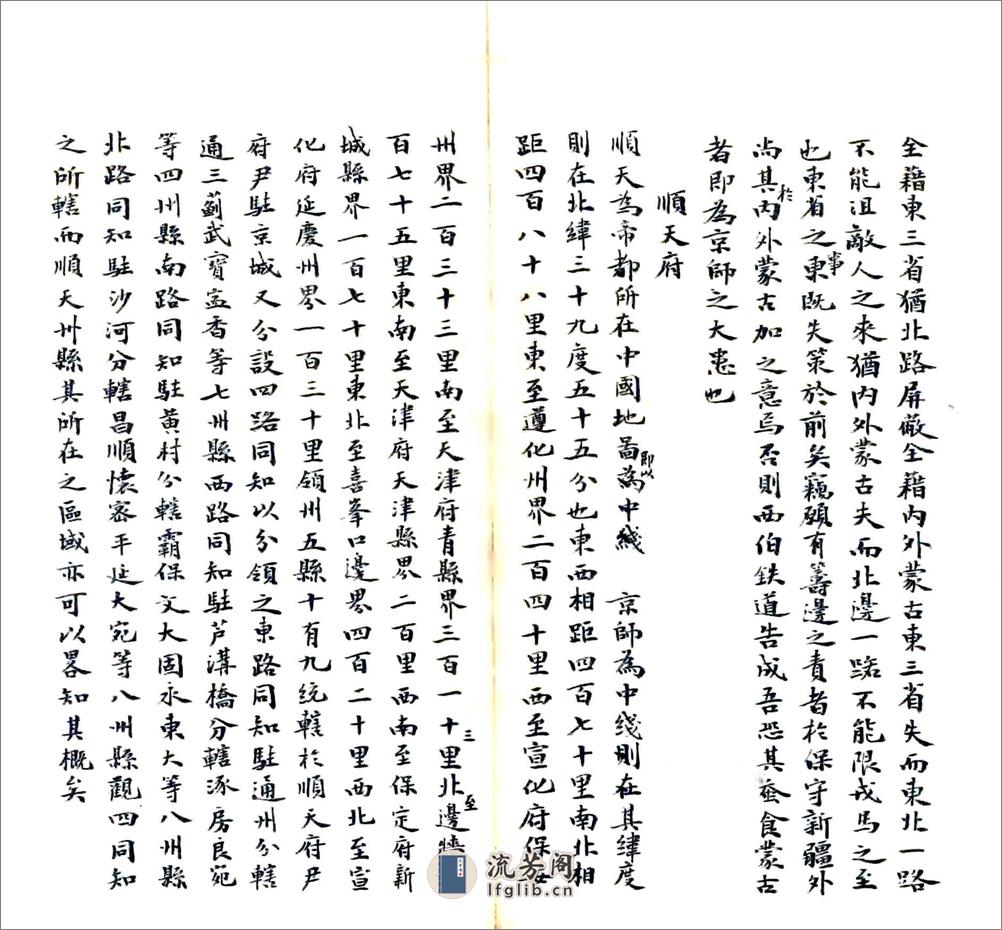 全藉東三省猶北路屏蔽全藉內外蒙古東三省失而東北一路
不能沮敵人之來猶內外蒙古失而北邊一路不能限戎馬之至
也東省之東事既失策於前矣竊願有籌邊之責者於保守新疆外
尚其於內外蒙古加之意焉否則西伯鉄道告成吾恐其蚕食蒙古
者即為京師之大患也
順天府
順天為帝都所在中國地啚即以為中綫 京師為中綫則在其緯度
則在北緯三十九度五十五分也東西相距四百七十里南北相
距四百八十八里東至遵化州界二百四十里西至宣化府保安
州界二百三十三里南至天津府青縣界三百一十三里北至邊牆
百七十五里東南至天津府天津縣界二百里西南至保定府新
城縣界一百七十里東北至喜峯口邊界四百二十里西北至宣
化府延慶州界一百三十里領州五縣十有九統轄於順天府尹
府尹駐京城又分設四路同知以分領之東路同知駐通州分轄
通三薊武寶寍香等七州縣西路同知駐芦溝橋分轄涿房良宛
等四州縣南路同知駐黃村分轄霸保文大固永東大等八州縣
北路同知駐沙河分轄昌順懷密平延大宛等八州縣觀四同知
之所轄而順天州縣其所在之區域亦可以畧知其概矣
流芳阁
lfglib.cn